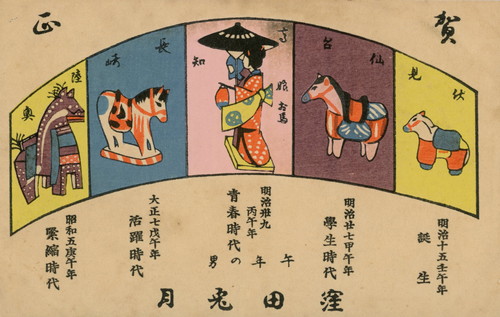 賀正
伏見
仙台
高知
娘お馬
長崎
陸奥
明治十五壬午年
誕生
明治廿七甲午年
學生時代
明治卅九
丙午年
青春時代
大正七戊午年
活躍時代
昭和五庚午年
緊縮時代
午年の男
窪田兎月